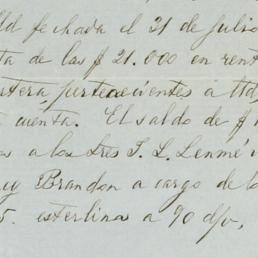 fechada el 21 de Julio
ta de las $ 21.000 en rent
pertenecientes a Ud
cuenta. El saldo de $
a los Sres J. L.
Brandon a cargo de lo
5. esterlina a 90 d/v.